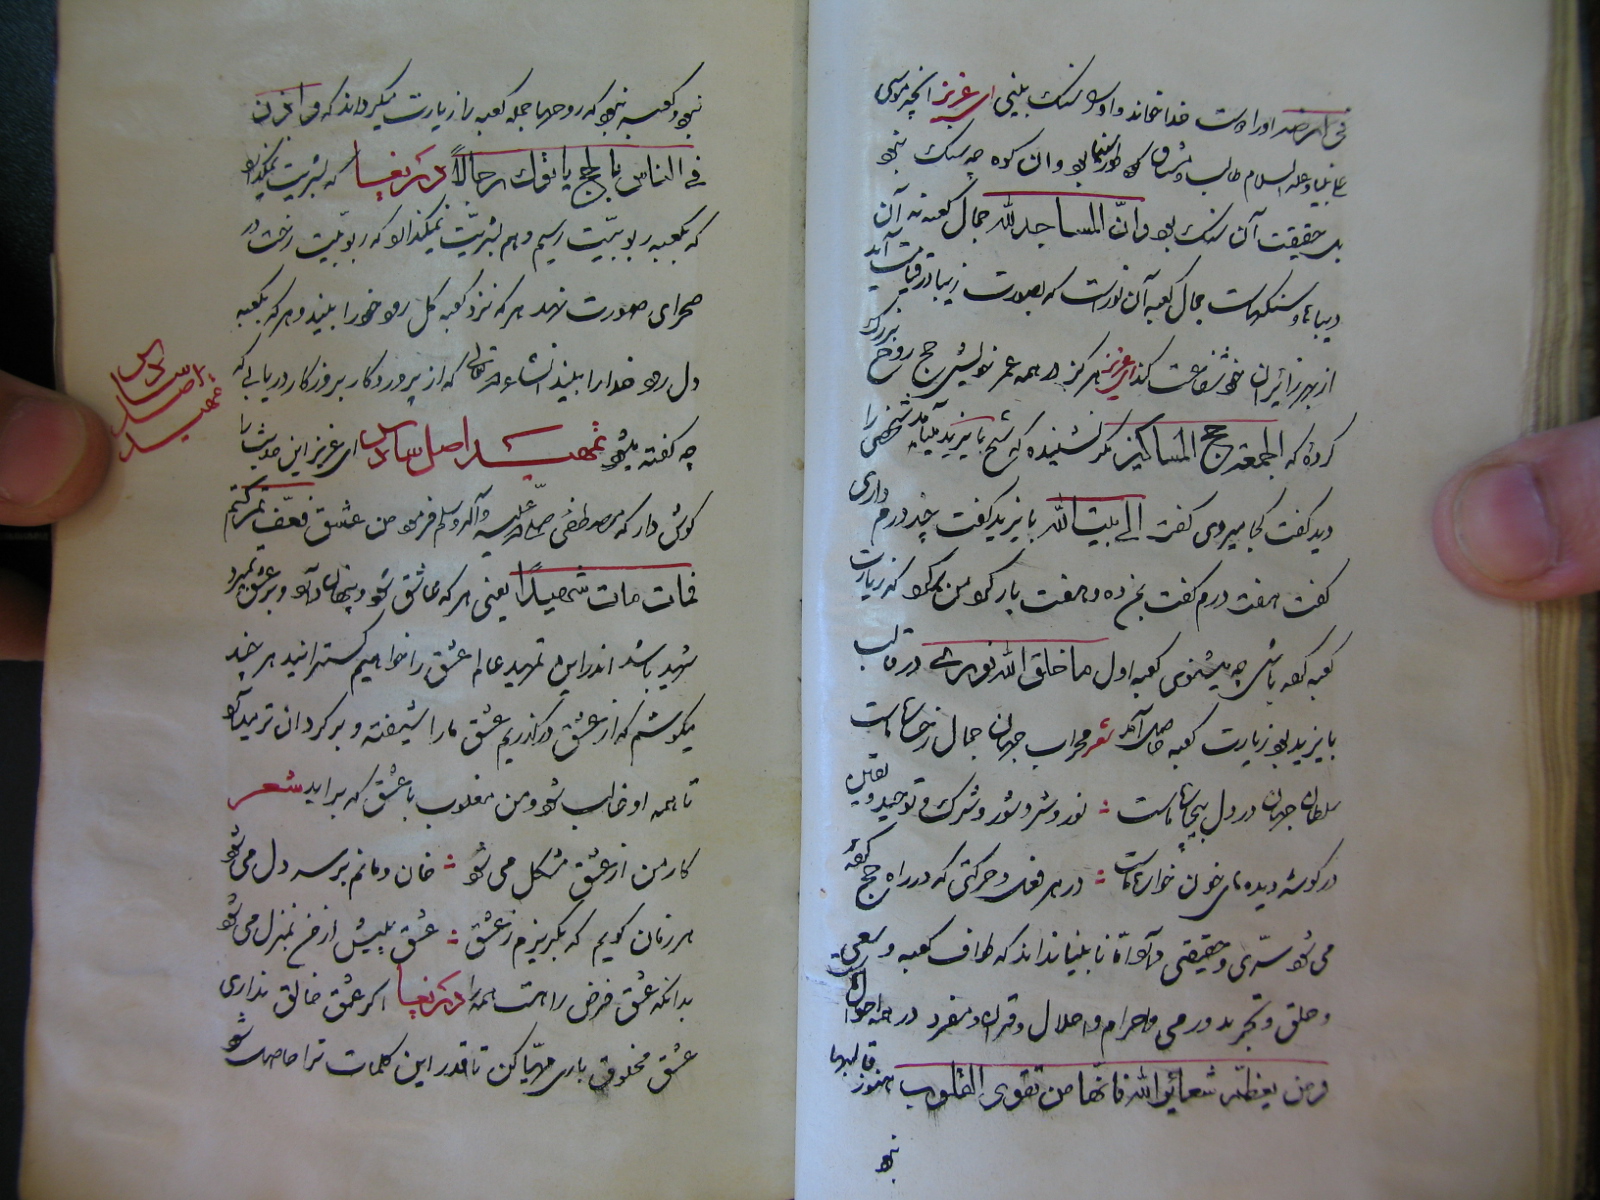 فی ارضه او را دست خدا خواند و او را سنگ بینی ای عزیز آنچه موسی
علی نبینا و علیه السلام طالب و مشتاق کوه طور سینا بود و آن کوه چه سنگ نبود
بل حقیقت آن سنگ بود وانّ المساجد لله جمال کعبه نه آن
دیباها و سنگهاست جمال کعبه آن نورست که بصورت زیبا در قیامت آید
از بهر زائران خود شفاعت کند ای عزیز هرگز در همه عمر خویش حج روح بزرگ
کرده که الجمعة حج المساکین مگر نشنیده که شیخ بایزید میآمد شخصی را
دید گفت کجا میروی گفت الی بیت الله بایزید گفت چند درم داری
گفت هفت درم گفت بمن ده و هفت بار گرد من بگرد که زیارت
کعبه کرده باشی چه میشنوی کعبه اول ما خلق الله نوری در قالب
بایزید بود زیارت کعبه حاصل آمد شعر محراب جهان جمال رخساره ماست
سلطان جهان در دل بیچاره ماست نور و شر و شور و شرک و توحید و یقین
در گوشه دیده‌های خون خواره ماست در هر فعلی و حرکتی که در راه حج کعبه
می شود سرّی و حقیقتی دارد اما نابینا نداند که طواف کعبه و سعی
و حلق و تجرید و رمی و احرام و احلال و قران و منفرد در همه احوال
ومن یعظم شعائر الله فانها من تقوی القلوب هنوز قالبها
نبود
نبود و کعبه نبود که روحها جمله کعبه را زیارت میکردند که واذن
فی الناس بالحج یاتوک رجالاً دریغا که بشریت نمیگذارد
که بکعبه ربوبیّت رسیم و هم بشریّت نمیگذارد که ربوبیّت رخت در
صحرای صورت نهد هر که نزد کعبه گل رود خود را بیند و هر که بکعبه
دل رود خدا را بیند انشاء الله تعالی که از پروردگار بروزگار دریابی که
چه گفته میشود تمهید اصل سادس ای عزیز این حدیث را
تمهید اصل سادس
گوش دار که مصطفی صلی الله علیه وآله وسلم فرمود من عشق فعفّ ثم کتم
فمات مات شهیدًا یعنی هر که عاشق شود و پنهان دارد و بر عشق بمیرد
شهید باشد اندر این تمهید عالم عشق را خواهیم گسترانید هر چند
میکوشم که از عشق درگذریم عشق ما را شیفته و سرگردان تر میدارد
تا همه او غالب شود و من مغلوب با عشق که براید شعر
کار من از عشق مشکل می شود خان و مانم بر سر دل می شود
هر زمان گویم که بگریزم ز عشق عشق پیش از من بمنزل می شود
بدانکه عشق فرض راهست همه را دریغا اگر عشق خالق نداری
عشق مخلوق باری مهیّا کن تا قدر این کلمات ترا حاصل شود